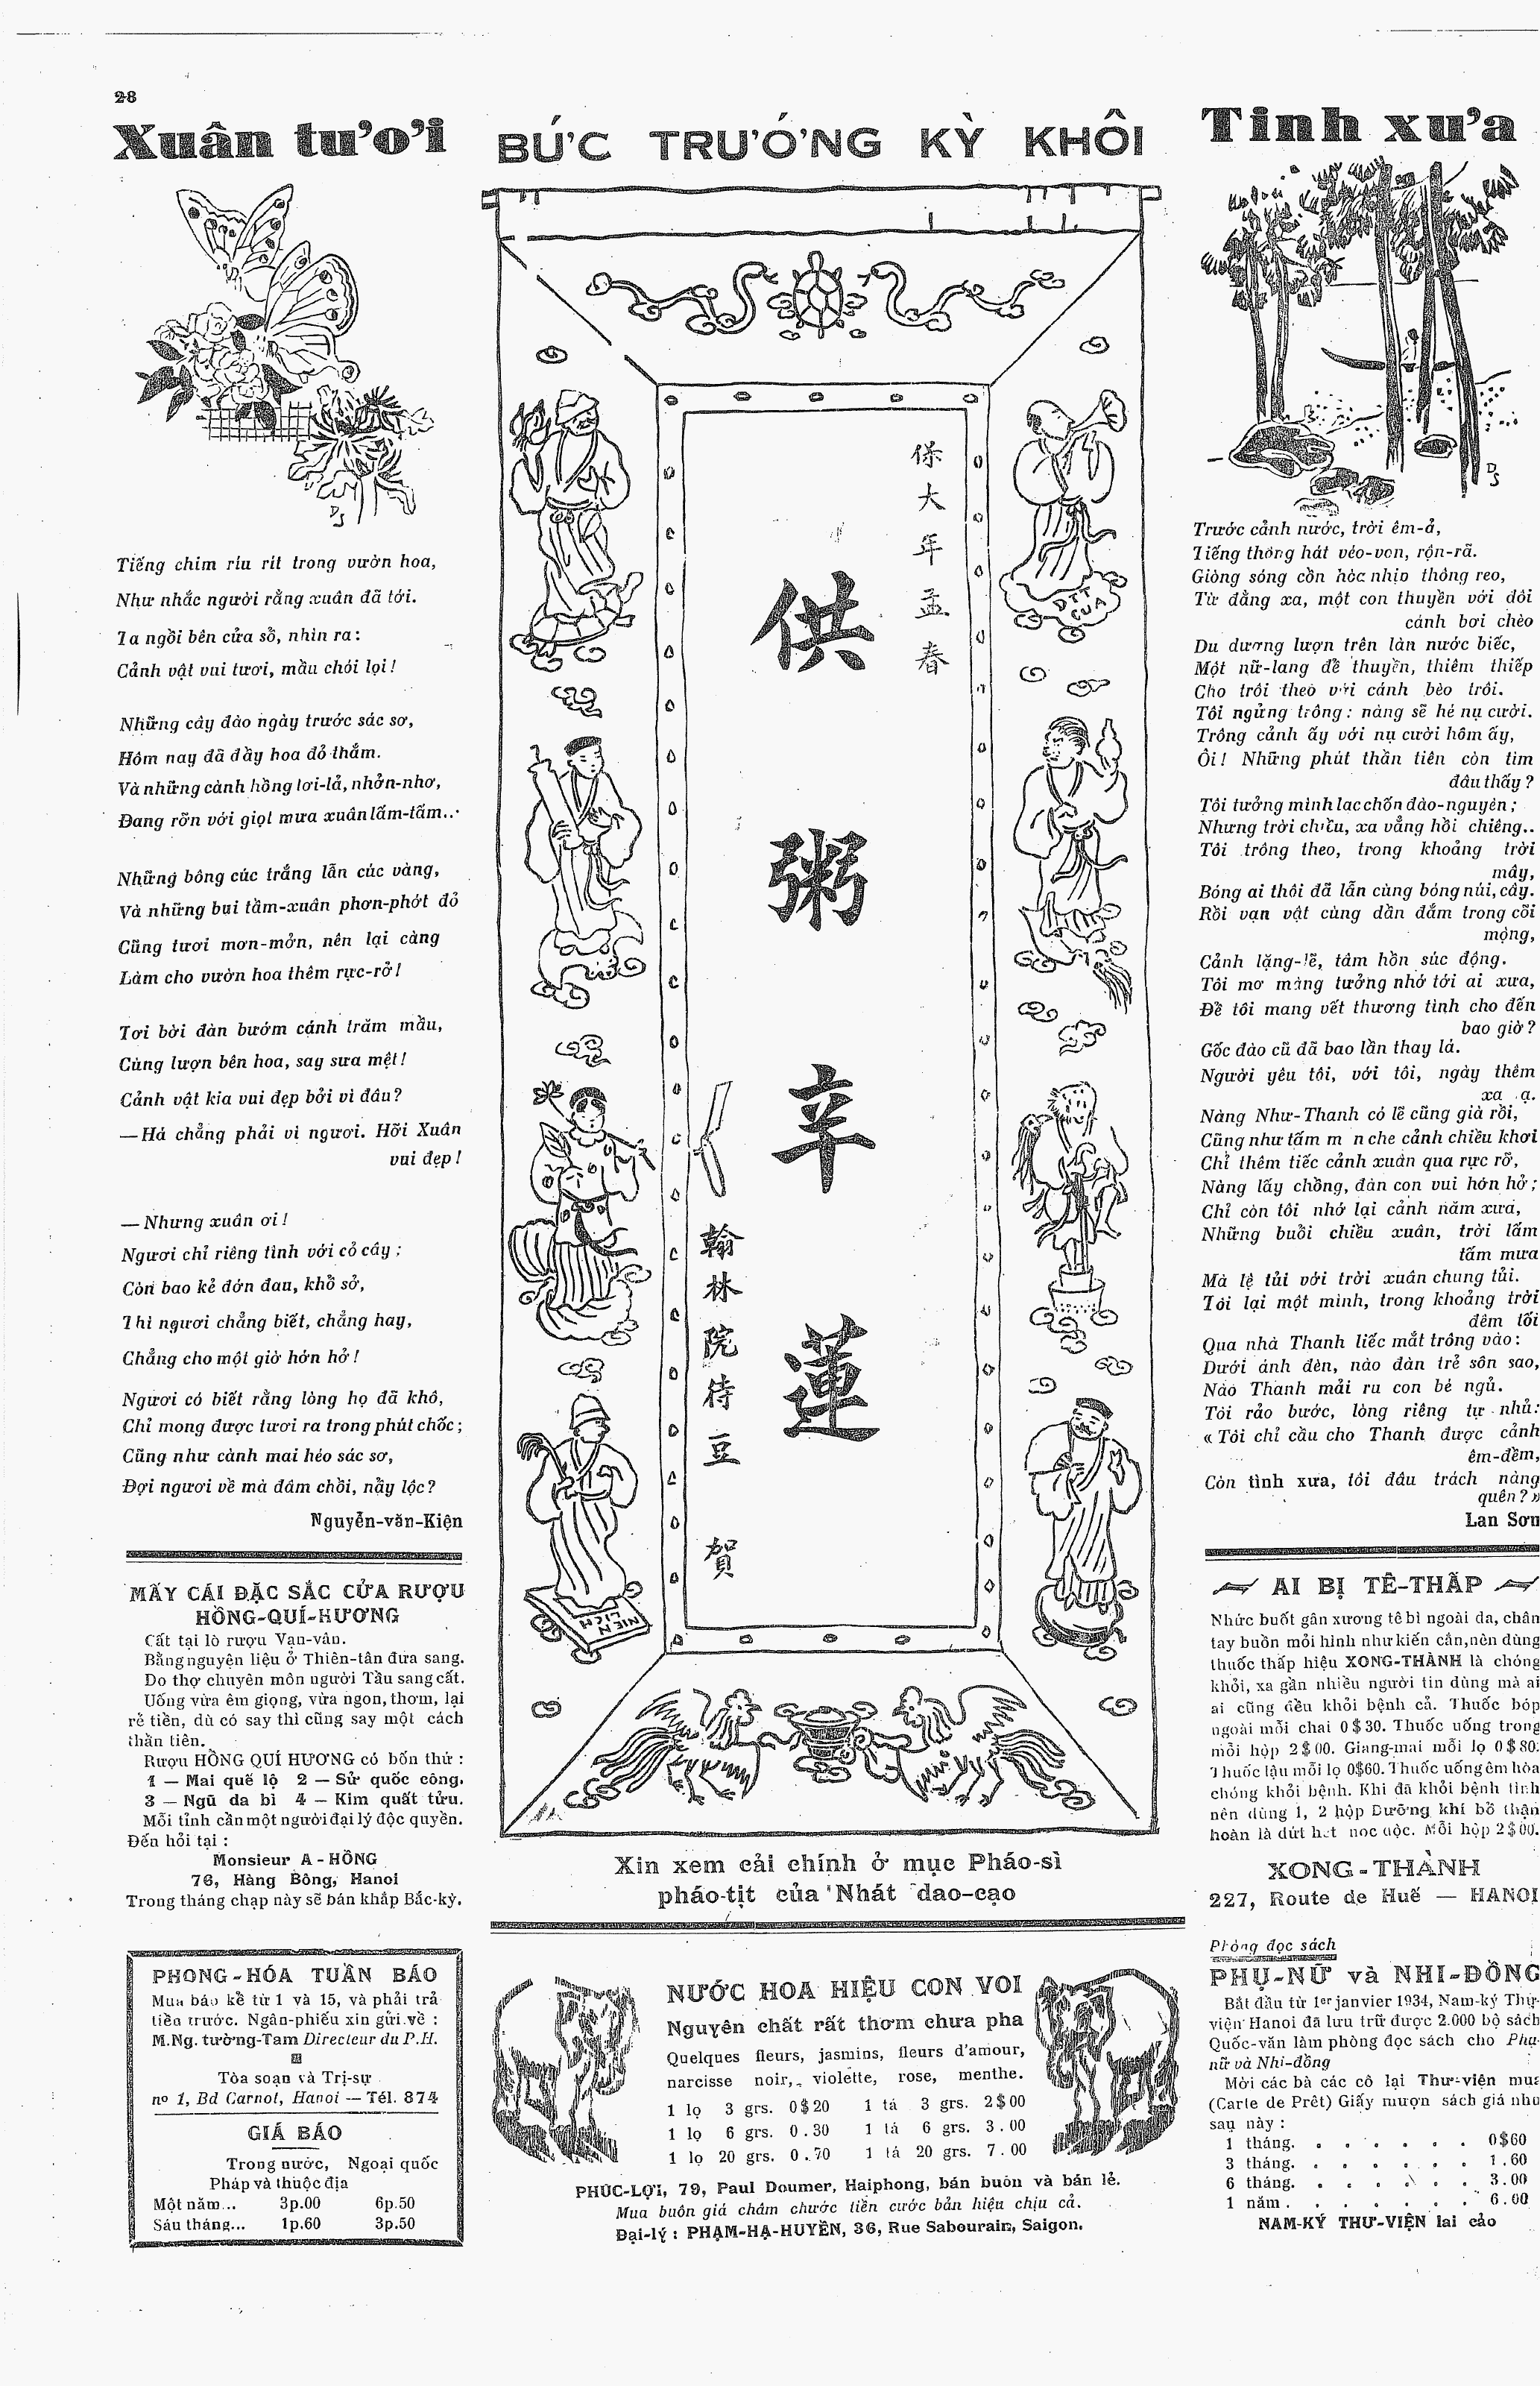 28
Xuân tươi
Tiếng chim ríu rít trong vườn hoa,
Như nhắc người rằng xuân đã tới.
Ta ngồi bên cửa sổ, nhìn ra:
Cảnh vật vui tươi, mầu chói lọi!
Những cây đào ngày trước sác sơ,
Hôm nay đã đầy hoa đỏ thắm.
Và những cành hồng lơi-lả, nhởn-nhơ,
Đang rỡn với giọt mưa xuân lấm-tấm...
Những bông cúc trắng lẫn cúc vàng,
Và những bụi tầm-xuân phơn-phớt đỏ
Cũng tươi mơn-mởn, nên lại càng
Làm cho vườn hoa thêm rực-rỡ!
Tơi bời đàn bướm cánh trăm mầu,
Cùng lượn bên hoa, say sưa mệt!
Cảnh vật kia vui đẹp bởi vì đâu?
— Há chẳng phải vì ngươi. Hỡi Xuân
vui đẹp!
— Nhưng xuân ơi!
Ngươi chỉ riêng tình với cỏ cây;
Còn bao kẻ đớn đau, khổ sở,
Thì ngươi chẳng biết, chẳng hay,
Chẳng cho một giờ hớn hở!
Ngươi có biết rằng lòng họ đã khô,
Chỉ mong được tươi ra trong phút chốc;
Cũng như cành mai héo sác sơ,
Đợi ngươi về mà đâm chồi, nẩy lộc?
Nguyễn-văn-Kiện
MẤY CÁI ĐẶC SẮC CỬA RƯỢU
HỒNG-QUÍ-HƯƠNG
Cất tại lò rượu Vạn-vân.
Bằng nguyện liệu ở Thiên-tân đưa sang.
Do thợ chuyên môn người Tầu sang cất.
Uống vừa êm giọng, vừa ngon, thơm, lại
rẻ tiền, dù có say thì cũng say một cách
thần tiên.
Rượu HỒNG QUÍ HƯƠNG có bốn thứ:
1 — Mai quế lộ 2 — Sử quốc công.
3 — Ngũ da bì 4 — Kim quất tửu.
Mỗi tỉnh cần một người đại lý độc quyền.
Đến hỏi tại:
Monsieur A - HỒNG
76, Hàng Bông, Hanoi
Trong tháng chạp này sẽ bán khắp Bắc-kỳ.
PHONG-HÓA TUẦN BÁO
Mua báo kể từ 1 và 15, và phải trả
tiền trước. Ngân-phiếu xin gửi về:
M.Ng. tường-Tam Directeur du P.H.
Tòa soạn và Trị-sự
nº 1, Bd Carnot, Hanoi — Tél. 874
GIÁ BÁO
Trong nước, Ngoại quốc
Pháp và thuộc địa
Một năm... 3p.00 6p.50
Sáu tháng... 1p.60 3p.50
BỨC TRƯỚNG KỲ KHÔI
保大年孟春
供粥辛蓮
翰林院待豆 賀
DTT
CUA
NIEN
LICH
Xin xem cải chính ở mục Pháo-sì
pháo-tịt của Nhát dao-cạo
NƯỚC HOA HIỆU CON VOI
Nguyên chất rất thơm chưa pha
Quelques fleurs, jasmins, fleurs d'amour,
narcisse noir, violette, rose, menthe.
1 lọ 3 grs. 0$20 1 tá 3 grs. 2$00
1 lọ 6 grs. 0.30 1 tá 6 grs. 3.00
1 lọ 20 grs. 0.70 1 tá 20 grs. 7.00
PHÚC-LỢI, 79, Paul Doumer, Haiphong, bán buôn và bán lẻ.
Mua buôn giá châm chước tiền cước bản hiệu chịu cả.
Đại-lý: PHẠM-HẠ-HUYỀN, 36, Rue Sabourain, Saigon.
Tình xưa
Trước cảnh nước, trời êm-ả,
Tiếng thông hát véo-von, rộn-rã.
Giòng sóng cồn hòa nhịp thông reo,
Từ đằng xa, một con thuyền với đôi
cánh bơi chèo
Du dương lượn trên làn nước biếc,
Một nữ-lang đề thuyền, thiêm thiếp
Cho trôi theo với cánh bèo trôi.
Tôi ngửng trông: nàng sẽ hé nụ cười.
Trông cảnh ấy với nụ cười hôm ấy,
Ôi! Những phút thần tiên còn tìm
đâu thấy?
Tôi tưởng mình lạc chốn đào-nguyên;
Nhưng trời chiều, xa vẳng hồi chiêng..
Tôi trông theo, trong khoảng trời
mây,
Bóng ai thôi đã lẫn cùng bóng núi, cây.
Rồi vạn vật cùng dần đắm trong cõi
mộng,
Cảnh lặng-lẽ, tâm hồn súc động.
Tôi mơ màng tưởng nhớ tới ai xưa,
Để tôi mang vết thương tình cho đến
bao giờ?
Gốc đào cũ đã bao lần thay lá.
Người yêu tôi, với tôi, ngày thêm
xa lạ.
Nàng Như-Thanh có lẽ cũng già rồi,
Cũng như tấm màn che cảnh chiều khơi
Chỉ thêm tiếc cảnh xuân qua rực rỡ,
Nàng lấy chồng, đàn con vui hớn hở;
Chỉ còn tôi nhớ lại cảnh năm xưa,
Những buổi chiều xuân, trời lấm
tấm mưa
Mà lệ tủi với trời xuân chung tủi.
Tôi lại một mình, trong khoảng trời
đêm tối
Qua nhà Thanh liếc mắt trông vào:
Dưới ánh đèn, nào đàn trẻ sôn sao,
Nào Thanh mải ru con bé ngủ.
Tôi rảo bước, lòng riêng tự nhủ:
« Tôi chỉ cầu cho Thanh được cảnh
êm-đềm,
Còn tình xưa, tôi đâu trách nàng
quên? »
Lan Sơn
AI BỊ TÊ-THẤP
Nhức buốt gân xương tê bì ngoài da, chân
tay buồn mỏi hình như kiến cắn, nên dùng
thuốc thấp hiệu XONG-THÀNH là chóng
khỏi, xa gần nhiều người tin dùng mà ai
ai cũng đều khỏi bệnh cả. Thuốc bóp
ngoài mỗi chai 0$30. Thuốc uống trong
mỗi hộp 2$00. Giang-mai mỗi lọ 0$80.
Thuốc lậu mỗi lọ 0$60. Thuốc uống êm hòa
chóng khỏi bệnh. Khi đã khỏi bệnh tình
nên dùng 1, 2 hộp Dưỡng khí bổ thận
hoàn là dứt hết nọc độc. Mỗi hộp 2$00.
XONG-THÀNH
227, Route de Huế — HANOI
Phòng đọc sách
PHỤ-NỮ và NHI-ĐỒNG
Bắt đầu từ 1er janvier 1934, Nam-ký Thư-
viện Hanoi đã lưu trữ được 2.000 bộ sách
Quốc-văn làm phòng đọc sách cho Phụ-
nữ và Nhi-đồng
Mời các bà các cô lại Thư-viện mua
(Carte de Prêt) Giấy mượn sách giá như
sau này:
1 tháng. . . . . . . 0$60
3 tháng. . . . . . . 1.60
6 tháng. . . . . . . 3.00
1 năm . . . . . . . 6.00
NAM-KÝ THƯ-VIỆN lai cảo